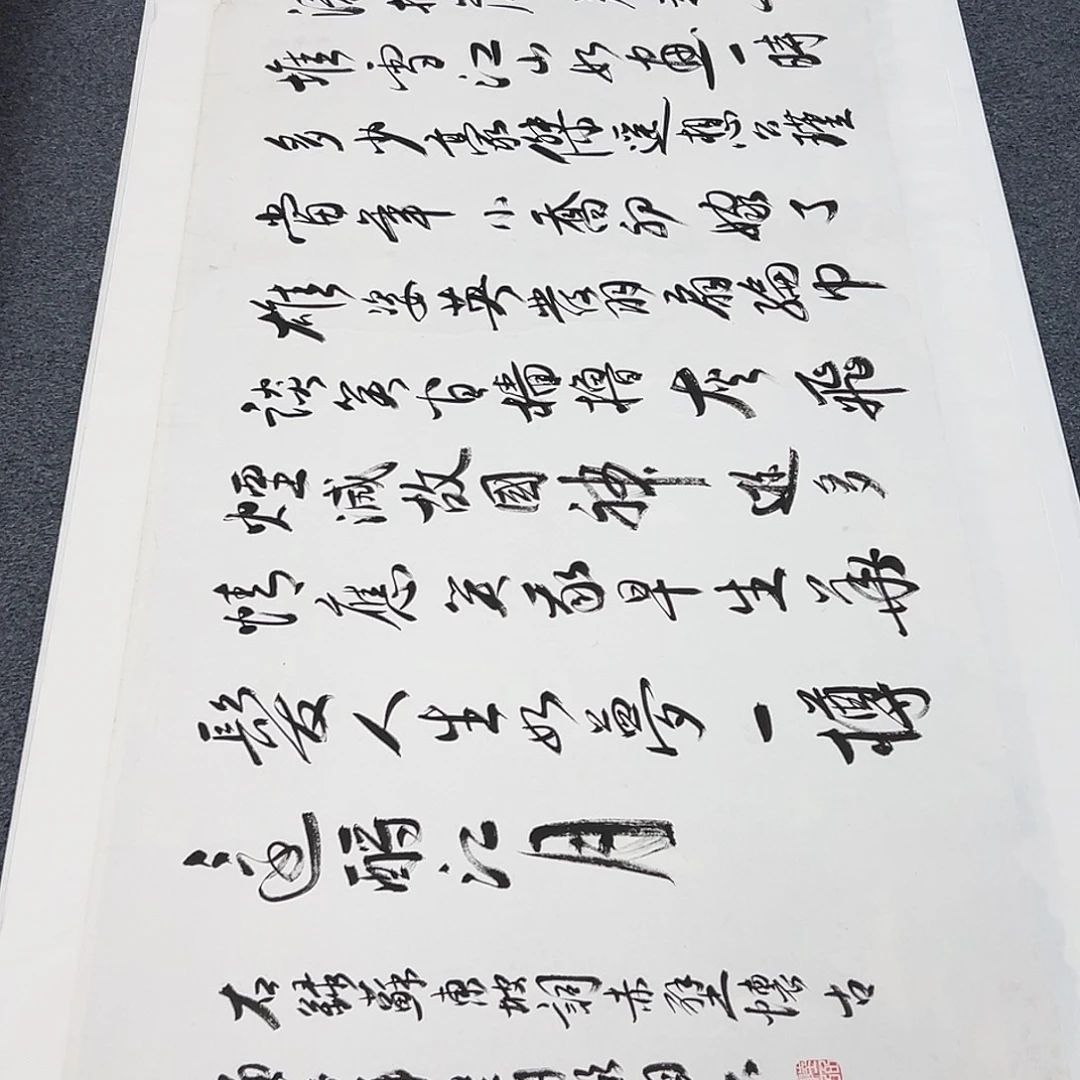 堆雪江山如畫一時
多少豪傑遥想公瑾
當年小喬初嫁了
雄姿英發羽扇綸巾
談笑間檣櫓灰飛
煙滅故國神遊多
情應笑我早生華
髮人生如夢一樽
還酹江月
右錄蘇東坡詞赤壁懷古